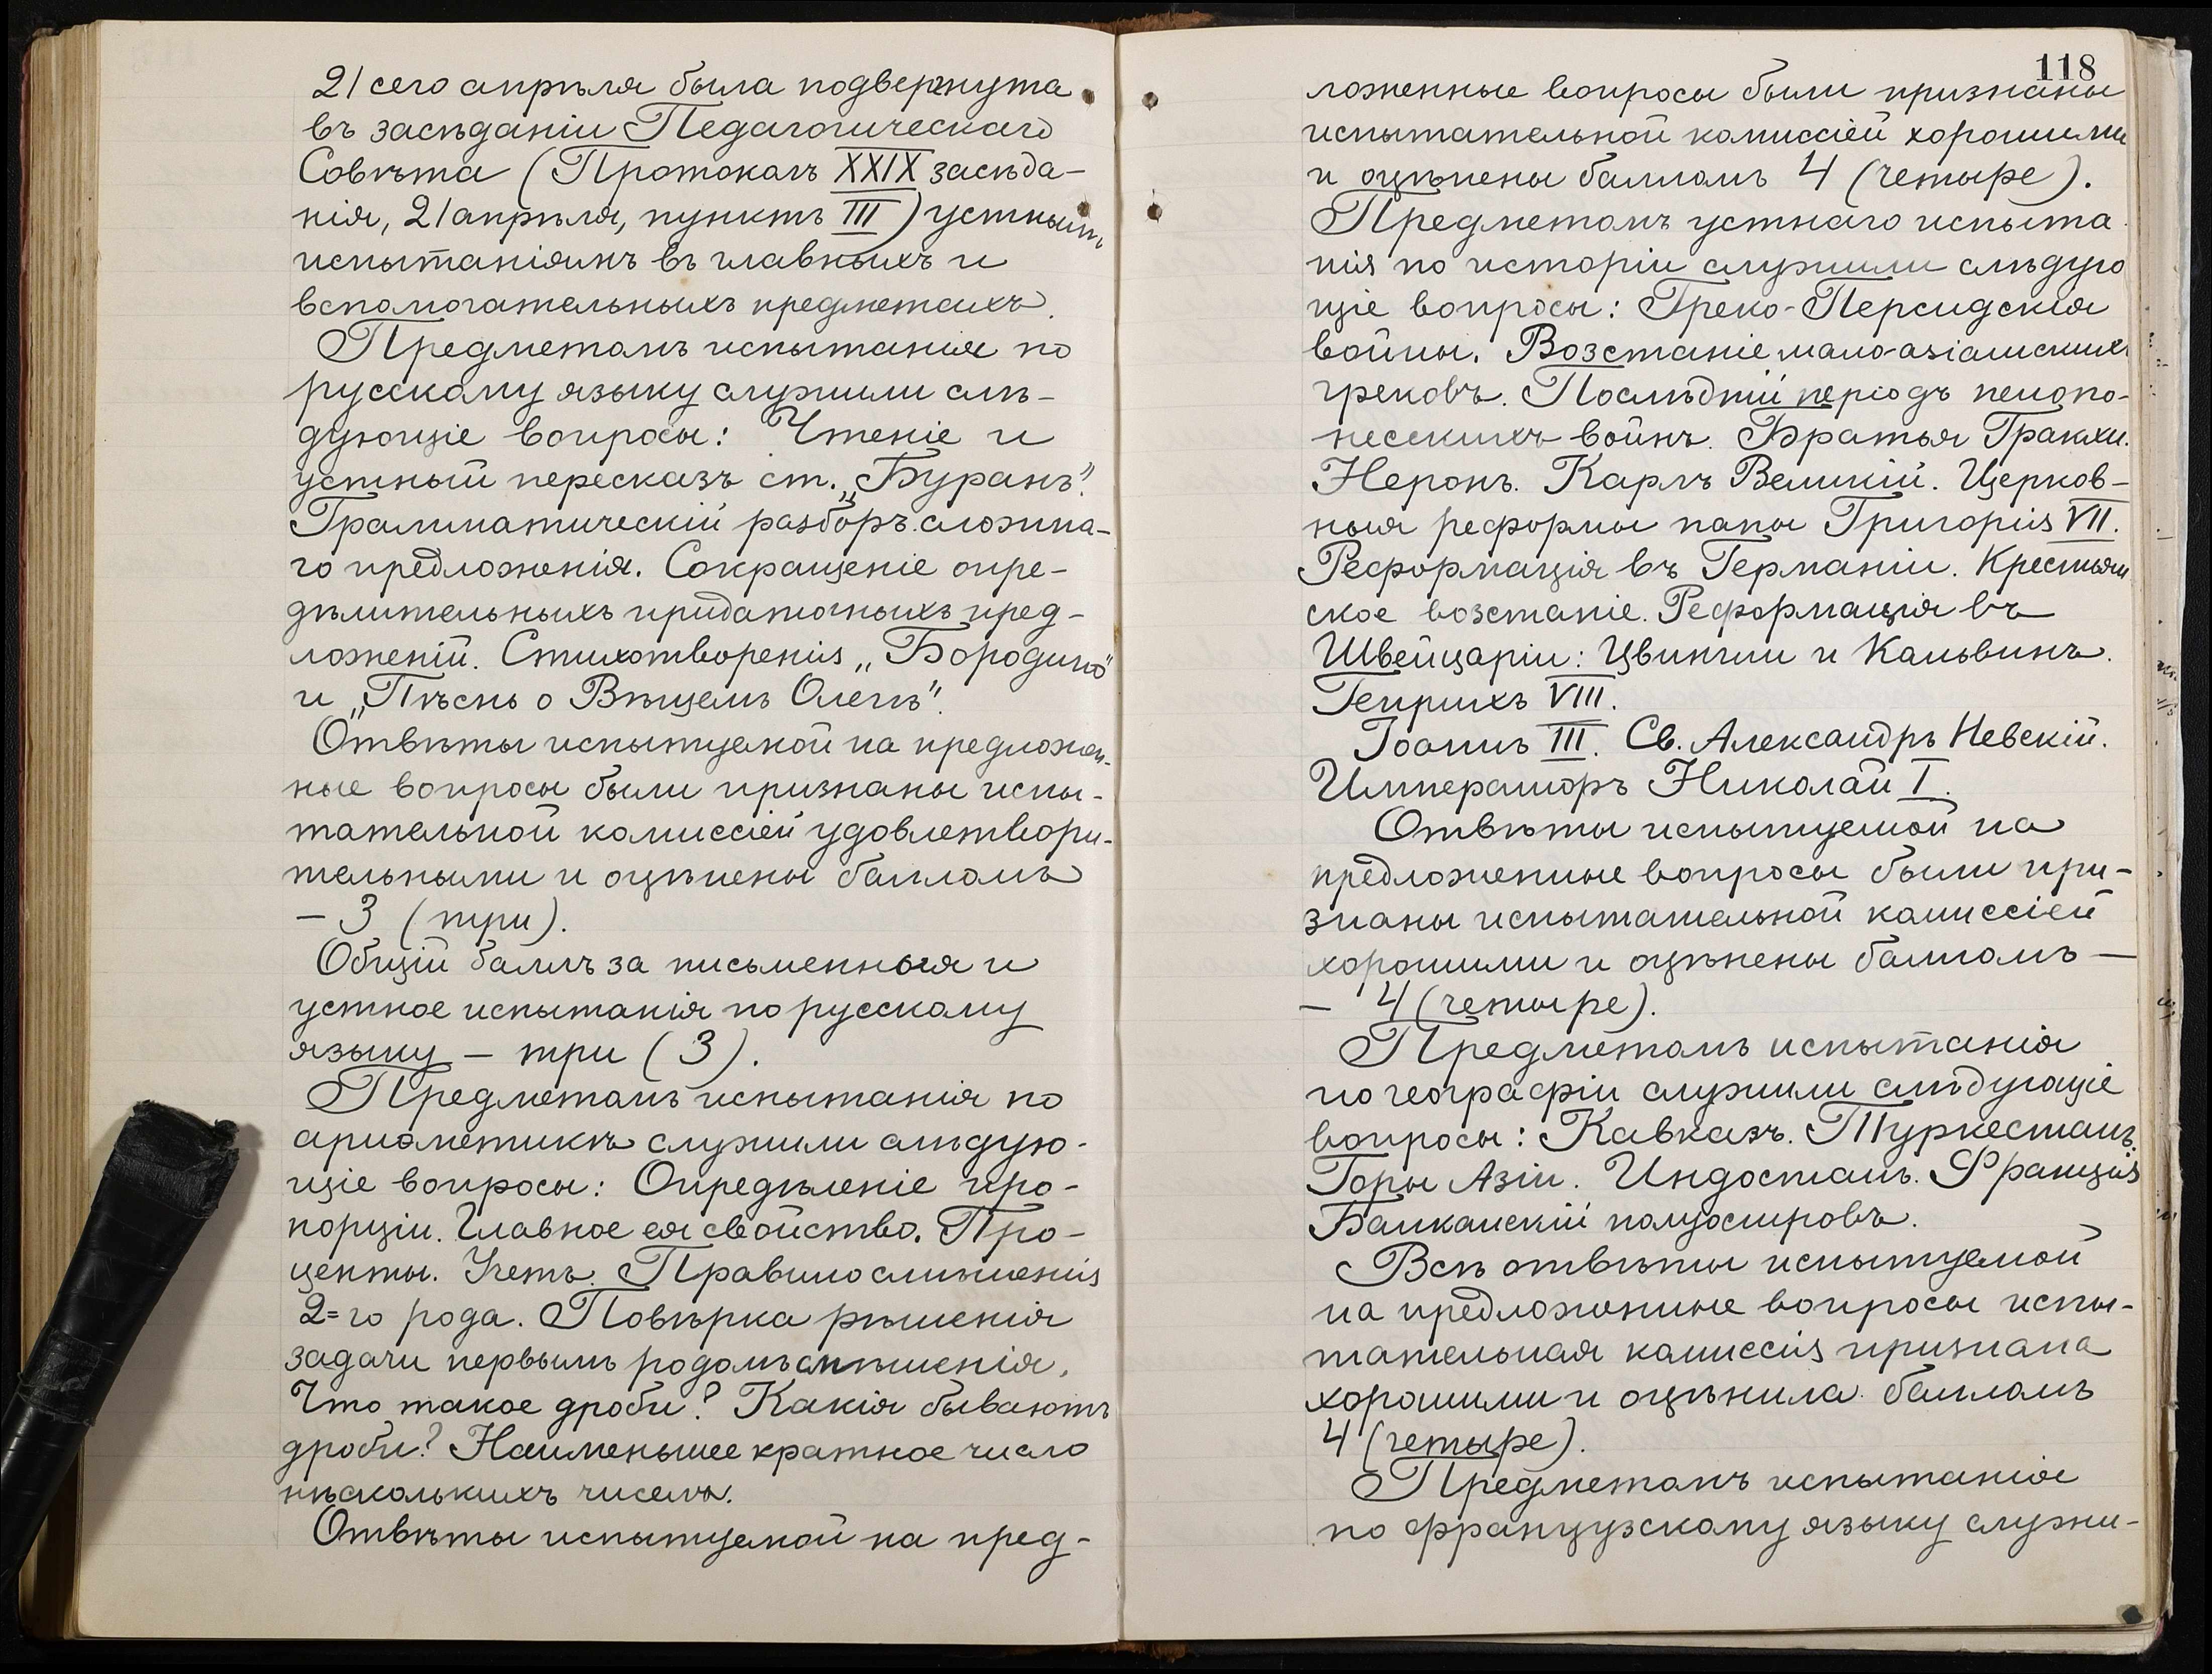 21 сего апрѣля была подвергнута
въ засѣданіи Педагогическаго
Совѣта (Протоколъ XXIX засѣда-
нія, 21 апрѣля, пунктъ III) устнымъ
испытаніямъ въ главныхъ и
вспомогательныхъ предметахъ.
Предметомъ испытанія по
русскому языку служили слѣ-
дующіе вопросы: Чтеніе и
устный пересказъ ст. „Буранъ".
Грамматическій разборъ сложна-
го предложенія. Сокращеніе опре-
дѣлительныхъ придаточныхъ пред-
ложеній. Стихотворенія „Бородино"
и „Пѣснь о Вѣщемъ Олегѣ".
Отвѣты испытуемой на предложен-
ные вопросы были признаны испы-
тательной комиссіей удовлетвори-
тельными и оцѣнены балломъ
– 3 (три).
Общій баллъ за письменныя и
устное испытанія по русскому
языку – три (3).
Предметомъ испытанія по
ариѳметикѣ служили слѣдую-
щіе вопросы: Опредѣленіе про-
порціи. Главное ея свойство. Про-
центы. Учетъ. Правило смѣшенія
2=го рода. Повѣрка рѣшенія
задачи первымъ родомъ смѣшенія.
Что такое дроби? Какія бываютъ
дроби? Наименьшее кратное число
нѣсколькихъ чиселъ.
Отвѣты испытуемой на пред-
118
ложенные вопросы были признаны
испытательной комиссіей хорошими
и оцѣнены балломъ 4 (четыре).
Предметомъ устнаго испыта-
нія по исторіи служили слѣдую
щіе вопросы: Греко-Персидскія
войны. Возстаніе мало-азіатскихъ
грековъ. Послѣдній періодъ пелопо-
несскихъ войнъ. Братья Гракхи.
Неронъ. Карлъ Великій. Церков-
ныя реформы папы Григорія VII.
Реформація въ Германіи. Крестьян
ское возстаніе. Реформація въ
Швейцаріи: Цвингли и Кальвинъ.
Генрихъ VIII.
Іоаннъ III. Св. Александръ Невскій.
Императоръ Николай I.
Отвѣты испытуемой на
предложенные вопросы были при-
знаны испытательной комиссіей
хорошими и оцѣнены балломъ —
– 4 (четыре).
Предметомъ испытанія
по географіи служили слѣдующіе
вопросы: Кавказъ. Туркестанъ.
Горы Азіи. Индостанъ. Франція
Балканскій полуостровъ.
Всѣ отвѣты испытуемой
на предложенные вопросы испы-
тательная комиссія признала
хорошими и оцѣнила балломъ
4 (четыре).
Предметомъ испытанія
по французскому языку служи-